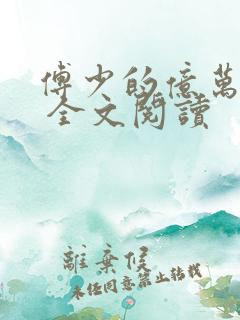 傅少的億萬
全文閱讀
離棄侯
未经同意禁止转载